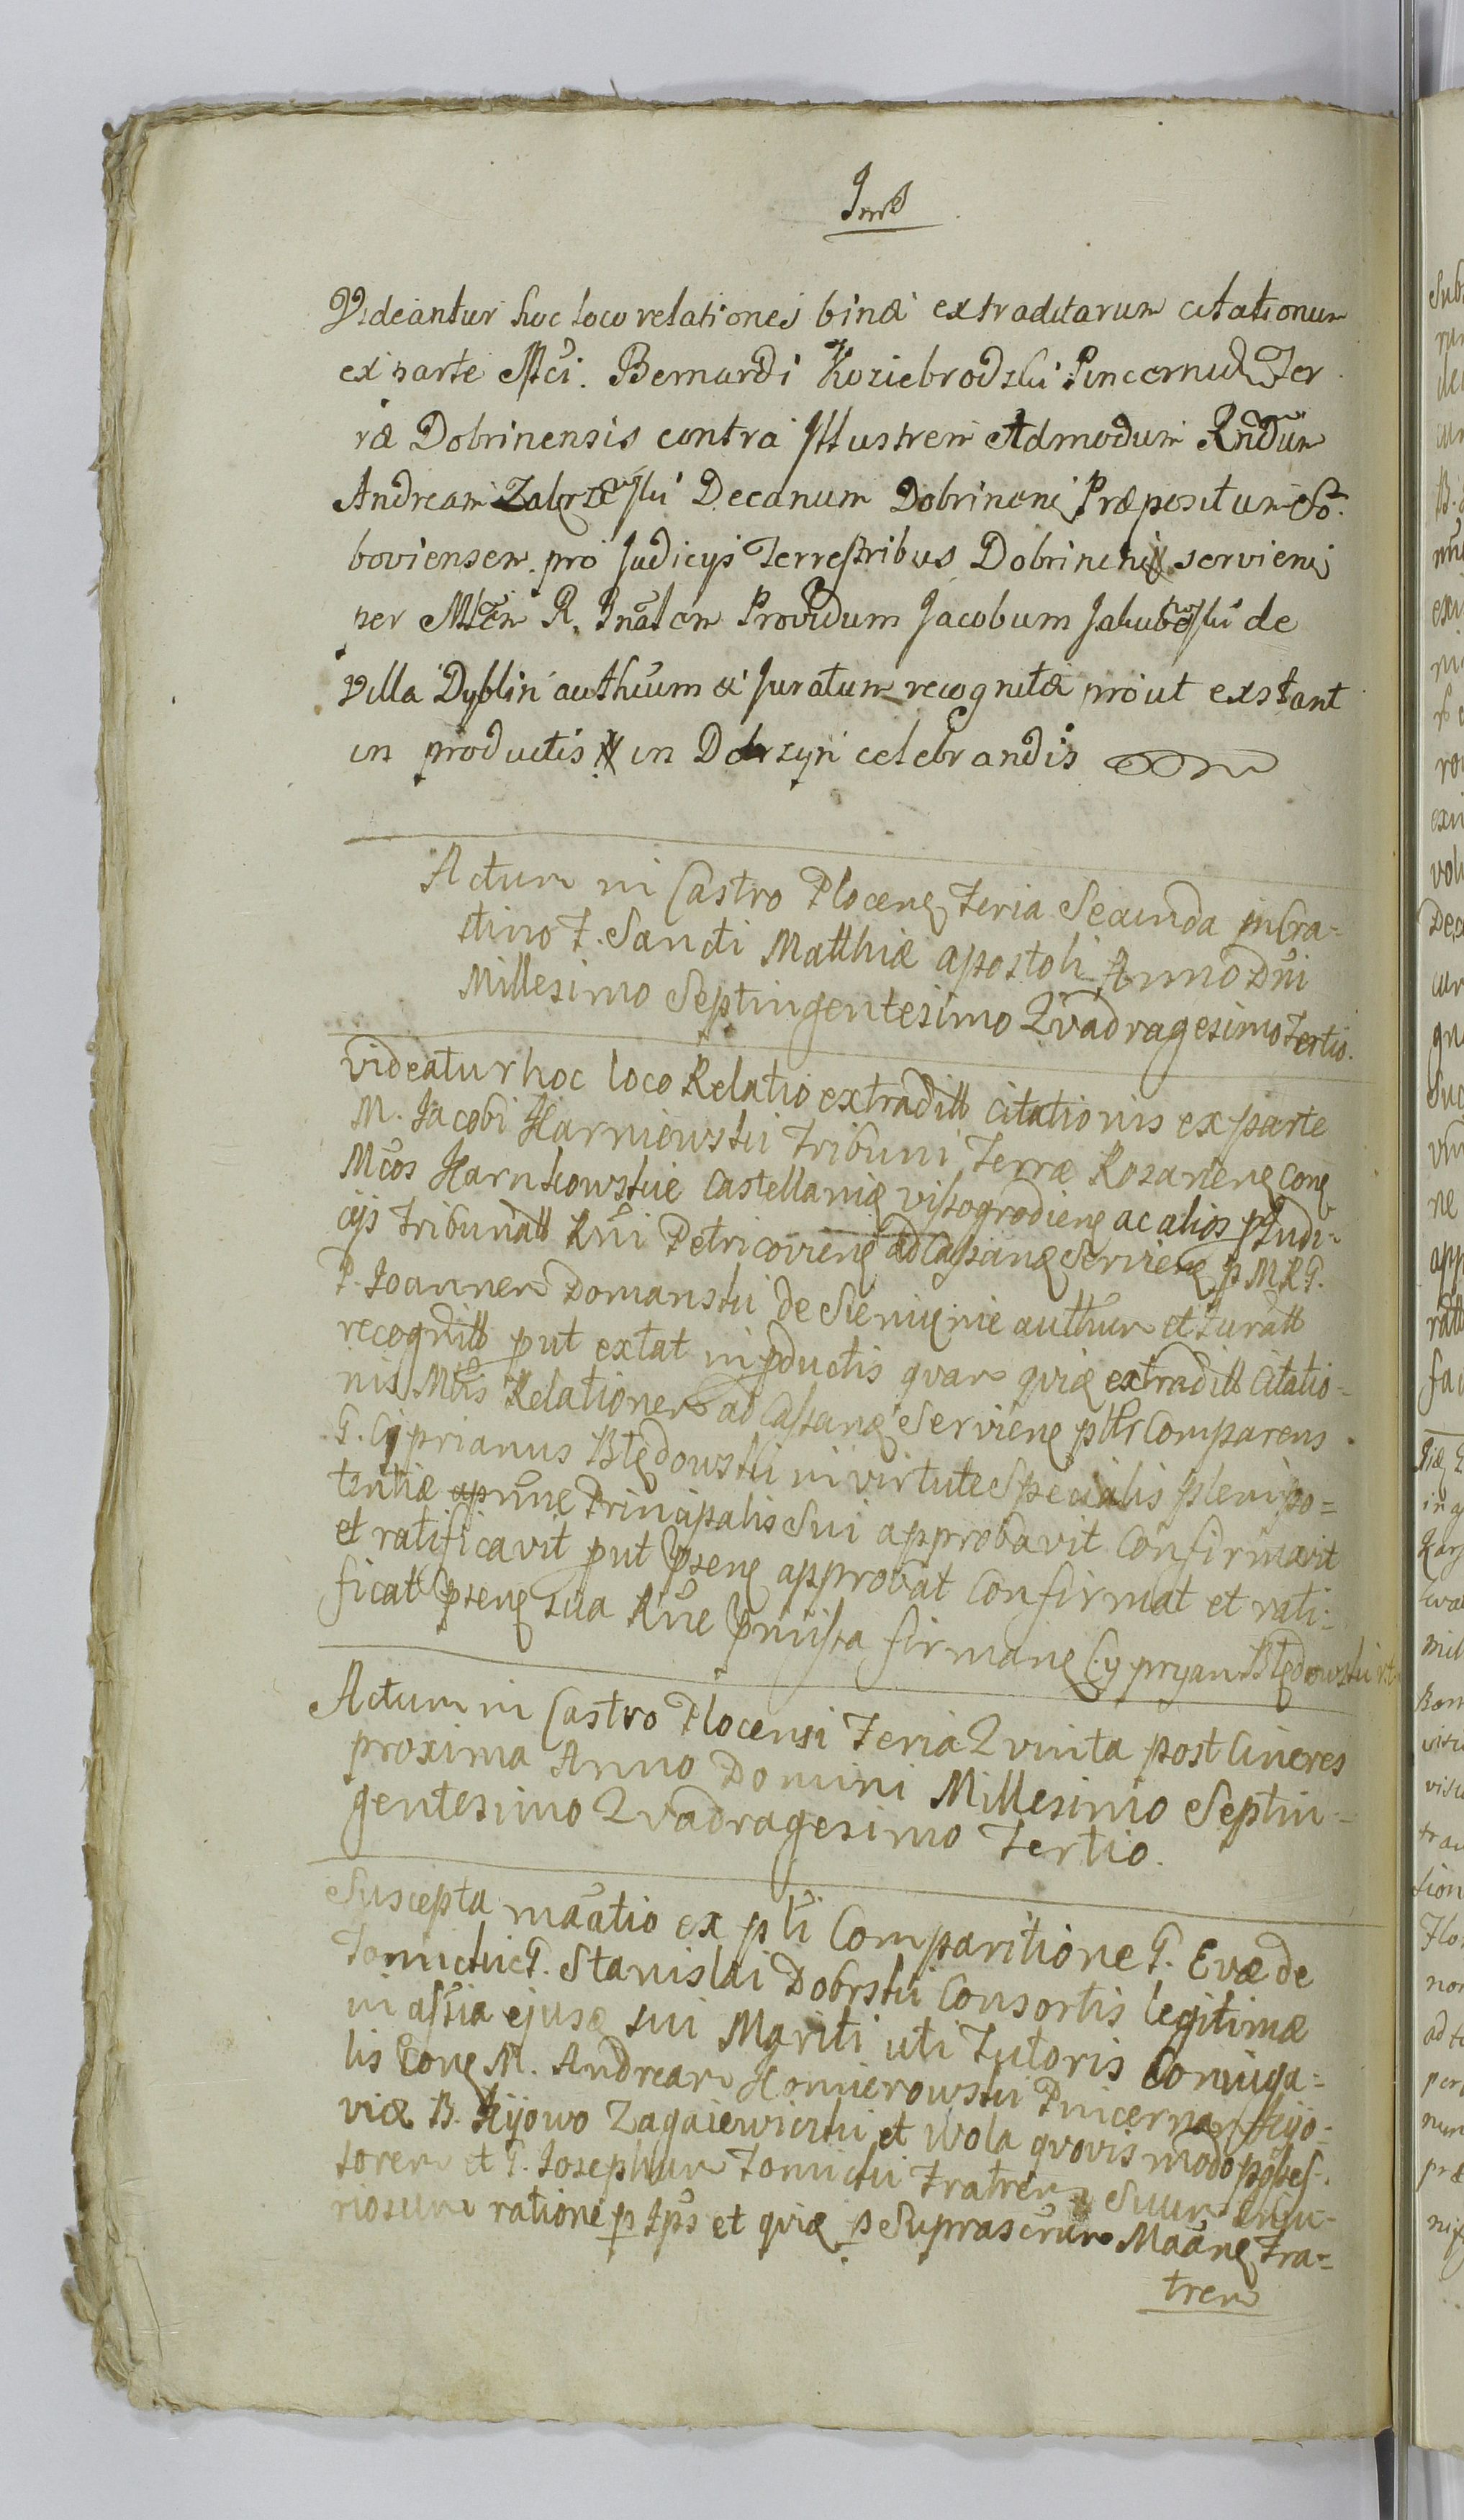 Videantur hoc loco relationes binæ extraditarum citationum
ex parte Mci. Bernardi Koziebrodzki Pincernæ Ter
ræ Dobrinensis contra Illustrem Admodum Rndum
Andream Decanum Dobrinens Præpositum So-
boviensem pro Judicys Terrestribus Dobrinens serviens
per Mltem R. Gnalem Providum Jacobum Jakubowski de
Villa Dyblin authcum & Juratum recognitæ prout exstant
in productis in Dobrzyn celebrandis
Actum in Castro Plocens Feria Secunda in Cra=
stino F. Sancti Matthiæ Apostoli Anno Dni
Millesimo Septingentesimo Qvadragesimo Tertio.
Videatur hoc loco Relatio extraditt Citationis ex parte
M. Jacobi Karniewski Tribuni Terræ Rozanens Cons
Mcos Karnkowskie Castellaniæ Vissogrodiens ac alios p Judi=
cijs Tribunalt Rni Petricoviens ad Cassans Serviens p M R G.
P. Joannem Domanski de Sieniense authum et Juratt
recognitt put extat in pductis qvam qvie extraditt Citatio=
nis Mtis Relationem ad Cassans Serviens plr Comparens
G. Cyprianus Błędowski in virtute Specialis plenipo=
tentiæ Principalis Sui approbavit Confirmavit
et ratificavit put psens approbat Confirmat et rati=
ficat psens sua Rne pmissa firmans Cypryan Błędowski
Actum in Castro Plocensi Feria Qvinta post Cineres
proxima Anno Domini Millesimo Septin=
gentesimo Qvadragesimo Tertio.
Suscepta maatio ex pli Comparitione G. Evæ de
Tomickie G. Stanislai Dobrski Consortis legitimæ
in assia ejusd sui Mariti uti Tutoris Coniuga=
lis Cons M. Andream Komierowski Pincernam Kijo=
viæ B. Kijowo Zagaiewiczki et Wola qvovis modo posses=
sorem et G. Josephum Tomicki Fratrem Suum
riosum ratione p Ips et qviæ p Suprascrum Maans Fra=
trem